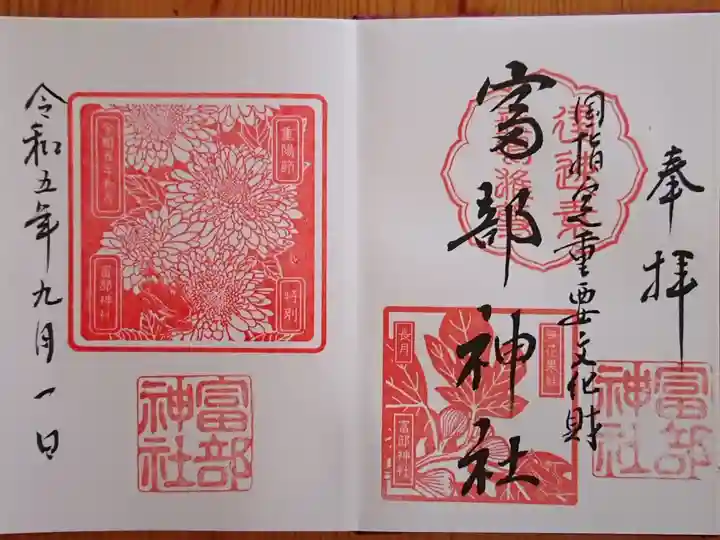 奉拝
国指定重要文化財
富部神社
富部神社
長月
富部神社
重陽節
特別
富部神社
富部神社
令和五年九月一日